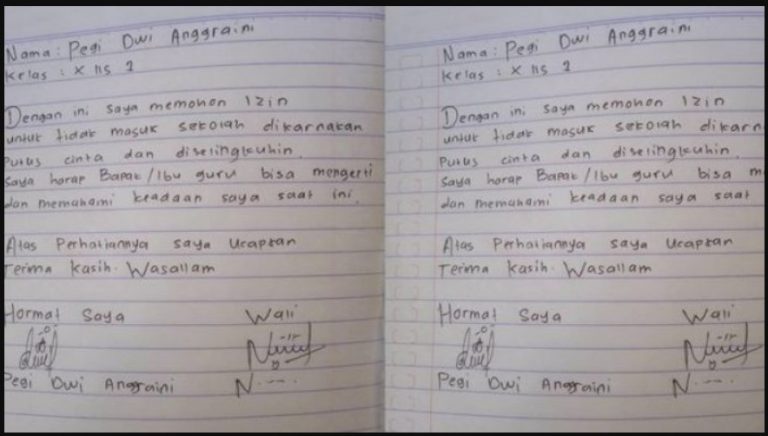 Nama : Pegi Dwi Anggraini
Kelas : X IIS 2
Dengan ini saya memohon Izin
untuk tidak masuk sekolah dikarnakan
Putus cinta dan diselingkuhin.
Saya harap Bapak/Ibu guru bisa mengerti
dan memahami keadaan saya saat ini.
Atas Perhatiannya saya Ucapkan
Terima kasih. Wasallam
Hormat Saya Wali
Pegi Dwi Anggraini N....
Nama : Pegi Dwi Anggraini
Kelas : X IIS 2
Dengan ini saya memohon Izin
untuk tidak masuk sekolah dikarn
Putus cinta dan diselingkuhin.
Saya harap Bapak/Ibu guru bisa m
dan memahami keadaan saya saat
Atas Perhatiannya saya Ucapkan
Terima kasih. Wasallam
Hormat Saya Wali
Pegi Dwi Anggraini N....